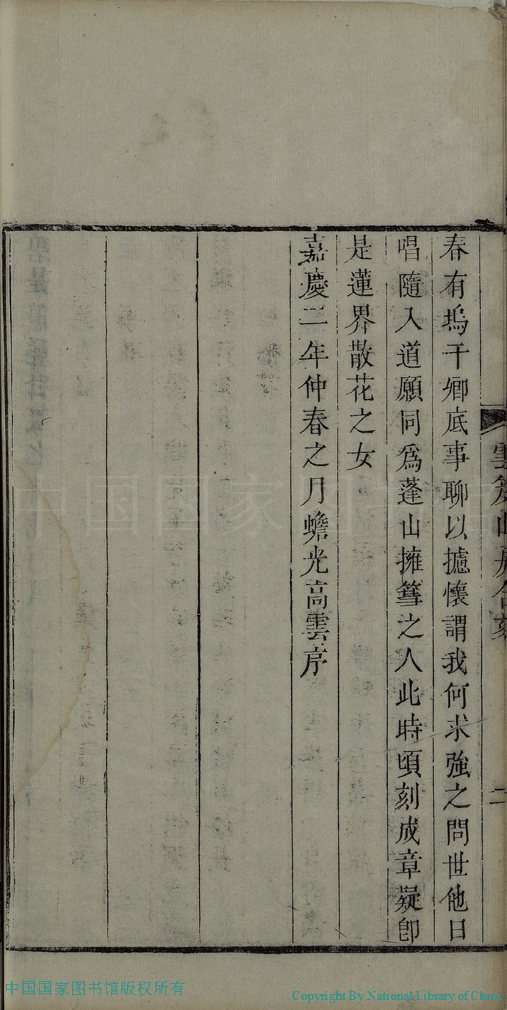 春有塢干卿底事聊以攄懷謂我何求強之問世他日
唱隨入道願同爲蓬山擁篲之人此時頃刻成章疑卽
是蓮界散花之女
嘉慶二年仲春之月蟾光高雲序
二
中国国家图书馆版权所有
Copyright By National Library of China